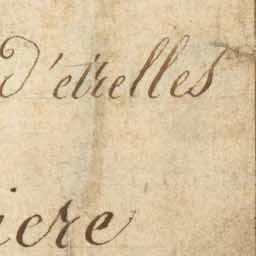 d'etrelles
iere